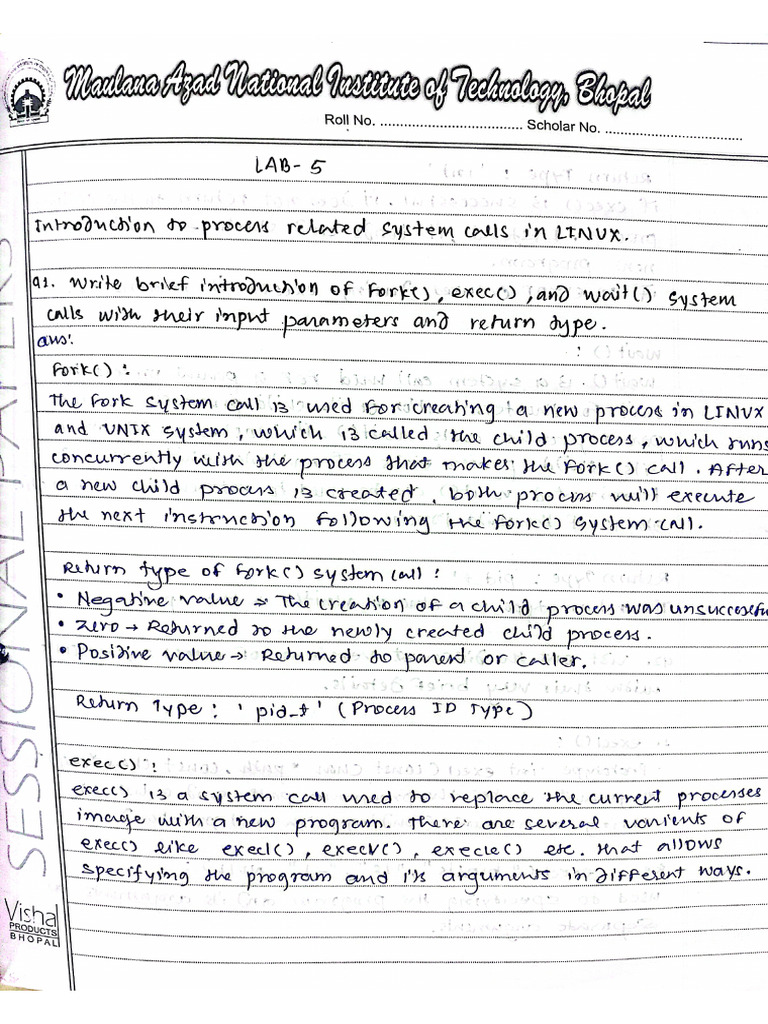 Maulana Azad National Institute of Technology, Bhopal
Roll No. ................................... Scholar No. ...................................
LAB-5
Introduction to process related system calls in LINUX.
Q1. Write brief introduction of fork(), exec(), and wait() system
calls with their input parameters and return type.
ans:
fork():
The fork system call is used for creating a new process in LINUX
and UNIX system, which is called the child process, which runs
concurrently with the process that makes the fork() call. After
a new child process is created, both process will execute
the next instruction following the fork() system call.
Return type of fork() system call:
• Negative value → The creation of a child process was unsuccessfu
• Zero → Returned to the newly created child process.
• Positive value → Returned to parent or caller.
Return Type: 'pid_t' (Process ID Type)
exec():
exec() is a system call used to replace the current processes
image with a new program. There are several varients of
exec() like execl(), execv(), execle() etc. that allows
specifying the program and its arguments in different ways.
SESSIONAL PAPERS
Visha
PRODUCTS
BHOPAL